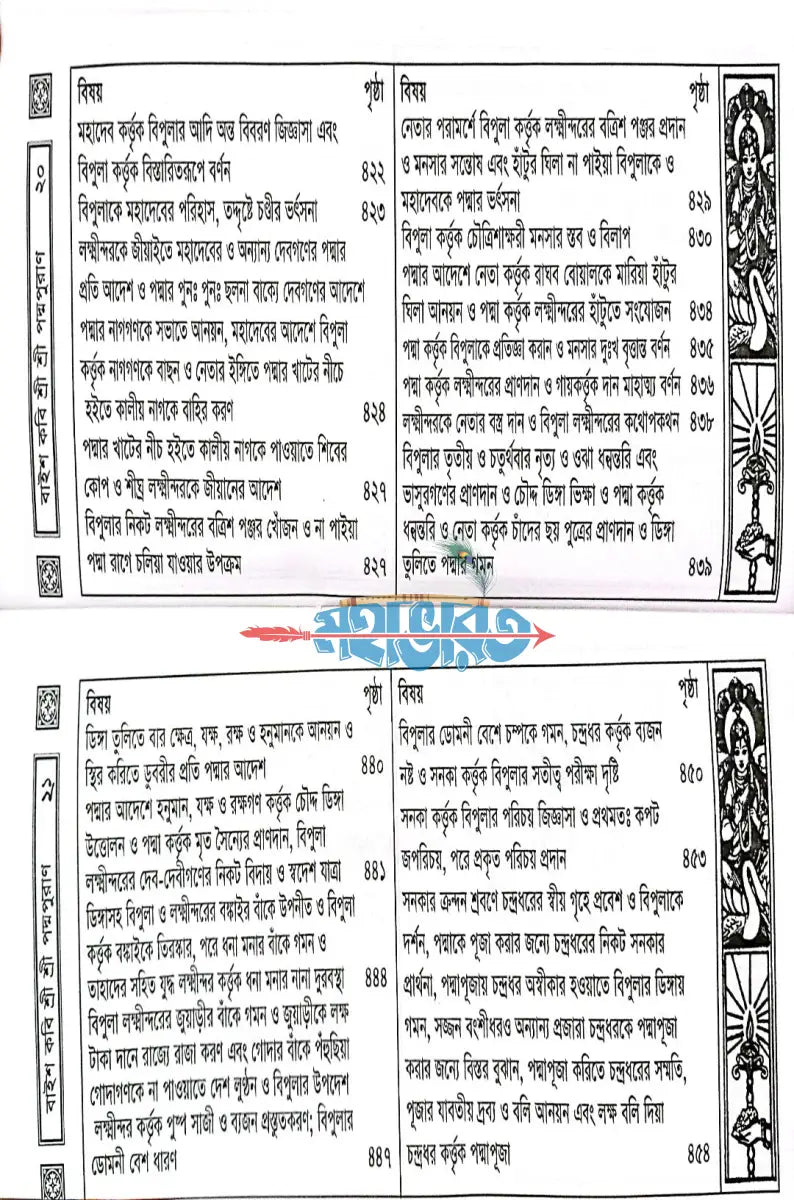 ২০
বাইশ কবি শ্রী শ্রী পদ্মপুরাণ
বিষয় পৃষ্ঠা
মহাদেব কর্ত্তৃক বিপুলার আদি অন্ত বিবরণ জিজ্ঞাসা এবং
বিপুলা কর্ত্তৃক বিস্তারিতরূপে বর্ণন ৪২২
বিপুলাকে মহাদেবের পরিহাস, তদ্দৃষ্টে চণ্ডীর ভর্ৎসনা ৪২৩
লক্ষ্মীন্দরকে জীয়াইতে মহাদেবের ও অন্যান্য দেবগণের পদ্মার
প্রতি আদেশ ও পদ্মার পুনঃ পুনঃ ছলনা বাক্যে দেবগণের আদেশে
পদ্মার নাগগণকে সভাতে আনয়ন, মহাদেবের আদেশে বিপুলা
কর্ত্তৃক নাগগণকে বাছন ও নেতার ইঙ্গিতে পদ্মার খাটের নীচে
হইতে কালীয় নাগকে বাহির করণ ৪২৪
পদ্মার খাটের নীচ হইতে কালীয় নাগকে পাওয়াতে শিবের
কোপ ও শীঘ্র লক্ষ্মীন্দরকে জীয়ানের আদেশ ৪২৭
বিপুলার নিকট লক্ষ্মীন্দরের বত্রিশ পঞ্জর খোঁজন ও না পাইয়া
পদ্মা রাগে চলিয়া যাওয়ার উপক্রম ৪২৭
বিষয় পৃষ্ঠা
নেতার পরামর্শে বিপুলা কর্ত্তৃক লক্ষ্মীন্দরের বত্রিশ পঞ্জর প্রদান
ও মনসার সন্তোষ এবং হাঁটুর ঘিলা না পাইয়া বিপুলাকে ও
মহাদেবকে পদ্মার ভর্ৎসনা ৪২৯
বিপুলা কর্ত্তৃক চৌত্রিশাক্ষরী মনসার স্তব ও বিলাপ ৪৩০
পদ্মার আদেশে নেতা কর্ত্তৃক রাঘব বোয়ালকে মারিয়া হাঁটুর
ঘিলা আনয়ন ও পদ্মা কর্ত্তৃক লক্ষ্মীন্দরের হাঁটুতে সংযোজন ৪৩৪
পদ্মা কর্ত্তৃক বিপুলাকে প্রতিজ্ঞা করান ও মনসার দুঃখ বৃত্তান্ত বর্ণন ৪৩৫
পদ্মা কর্ত্তৃক লক্ষ্মীন্দরের প্রাণদান ও গায়কর্ত্তৃক দান মাহাত্ম্য বর্ণন ৪৩৬
লক্ষ্মীন্দরকে নেতার বস্ত্র দান ও বিপুলা লক্ষ্মীন্দরের কথোপকথন ৪৩৮
বিপুলার তৃতীয় ও চতুর্থবার নৃত্য ও ওঝা ধন্বন্তরি এবং
ভাসুরগণের প্রাণদান ও চৌদ্দ ডিঙ্গা ভিক্ষা ও পদ্মা কর্ত্তৃক
ধন্বন্তরি ও নেতা কর্ত্তৃক চাঁদের ছয় পুত্রের প্রাণদান ও ডিঙ্গা
তুলিতে পদ্মার গমন ৪৩৯
মহাভারত
২১
বাইশ কবি শ্রী শ্রী পদ্মপুরাণ
বিষয় পৃষ্ঠা
ডিঙ্গা তুলিতে বার ক্ষেত্র, যক্ষ, রক্ষ ও হনুমানকে আনয়ন ও
স্থির করিতে ডুবরীর প্রতি পদ্মার আদেশ ৪৪০
পদ্মার আদেশে হনুমান, যক্ষ ও রক্ষগণ কর্ত্তৃক চৌদ্দ ডিঙ্গা
উত্তোলন ও পদ্মা কর্ত্তৃক মৃত সৈন্যের প্রাণদান, বিপুলা
লক্ষ্মীন্দরের দেব-দেবীগণের নিকট বিদায় ও স্বদেশ যাত্রা ৪৪১
ডিঙ্গাসহ বিপুলা ও লক্ষ্মীন্দরের বঙ্কাইর বাঁকে উপনীত ও বিপুলা
কর্ত্তৃক বঙ্কাইকে তিরস্কার, পরে ধনা মনার বাঁকে গমন ও
তাহাদের সহিত যুদ্ধ লক্ষ্মীন্দর কর্ত্তৃক ধনা মনার নানা দুরবস্থা ৪৪৪
বিপুলা লক্ষ্মীন্দরের জুয়াড়ীর বাঁকে গমন ও জুয়াড়ীকে লক্ষ
টাকা দানে রাজ্যে রাজা করণ এবং গোদার বাঁকে পঁহুছিয়া
গোদাগণকে না পাওয়াতে দেশ লুণ্ঠন ও বিপুলার উপদেশ
লক্ষ্মীন্দর কর্ত্তৃক পুষ্প সাজী ও ব্যজন প্রস্তুতকরণ; বিপুলার
ডোমনী বেশ ধারণ ৪৪৭
বিষয় পৃষ্ঠা
বিপুলার ডোমনী বেশে চম্পকে গমন, চন্দ্রধর কর্ত্তৃক ব্যজন
নষ্ট ও সনকা কর্ত্তৃক বিপুলার সতীত্ব পরীক্ষা দৃষ্টি ৪৫০
সনকা কর্ত্তৃক বিপুলার পরিচয় জিজ্ঞাসা ও প্রথমতঃ কপট
জপরিচয়, পরে প্রকৃত পরিচয় প্রদান ৪৫৩
সনকার ক্রন্দন শ্রবণে চন্দ্রধরের স্বীয় গৃহে প্রবেশ ও বিপুলাকে
দর্শন, পদ্মাকে পূজা করার জন্যে চন্দ্রধরের নিকট সনকার
প্রার্থনা, পদ্মাপূজায় চন্দ্রধর অস্বীকার হওয়াতে বিপুলার ডিঙ্গায়
গমন, সজ্জন বংশীধরও অন্যান্য প্রজারা চন্দ্রধরকে পদ্মাপূজা
করার জন্যে বিস্তর বুঝান, পদ্মাপূজা করিতে চন্দ্রধরের সম্মতি,
পূজার যাবতীয় দ্রব্য ও বলি আনয়ন এবং লক্ষ বলি দিয়া
চন্দ্রধর কর্ত্তৃক পদ্মাপূজা ৪৫৪